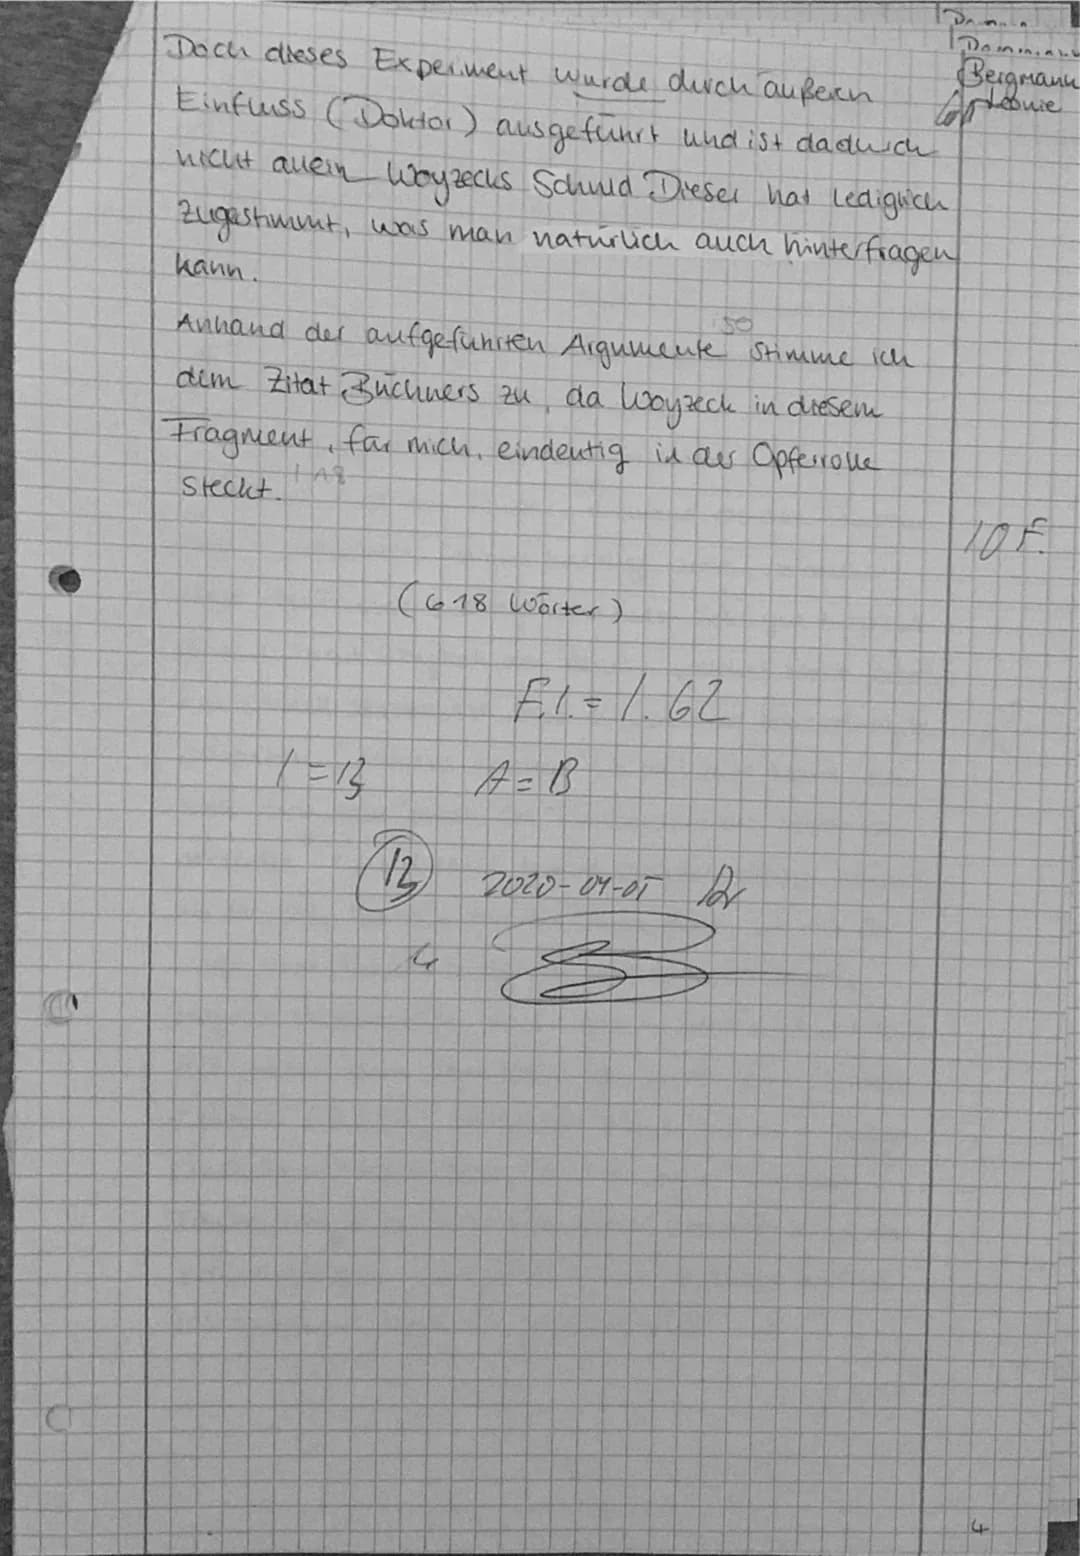 Bergmann
Leonie
Doch dieses Experiment wurde durch äußern
Einfluss (Doktor) ausgeführt und ist dadurch
nicht allein Woyzecks Schuld Dieser hat lediglich
zugestimmt, was man natürlich auch hinterfragen
kann.
Anhand der aufgeführten Argumente stimme ich
dem Zitat Büchners zu, da Woyzeck in diesem
Fragment, für mich, eindeutig in der Opferrolle
steckt.
10 F.
(618 Wörter)
F.I. = 1.62
I = 13 A = B
13 2020-04-05
4